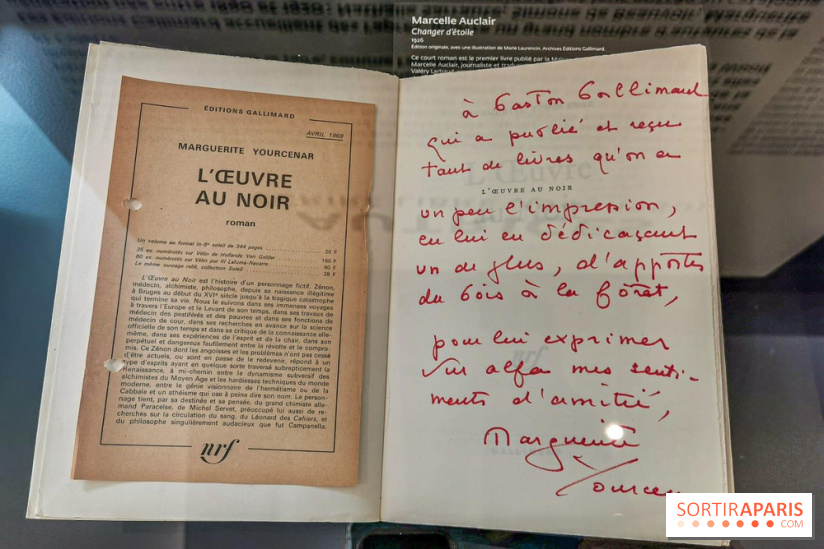 Marcelle Auclair
Changer d'étoile
1926
Édition originale, avec une illustration de Marie Laurencin. Archives Éditions Gallimard.
Ce court roman est le premier livre publié par la
Marcelle Auclair, journaliste et
Valéry Larbaud
ÉDITIONS GALLIMARD
AVRIL 1968
MARGUERITE YOURCENAR
L'ŒUVRE
AU NOIR
roman
Un volume au format in-8º soleil de 344 pages
25 ex. numérotés sur Vélin de Hollande Van Gelder
80 ex. numérotés sur Vélin pur fil Lafuma-Navarre
Le même ouvrage relié, collection Soleil
L'Œuvre au Noir est l'histoire d'un personnage fictif, Zénon,
médecin, alchimiste, philosophe, depuis sa naissance illégitime
à Bruges au début du XVIe siècle jusqu'à la tragique catastrophe
qui termine sa vie. Nous le suivons dans ses immenses voyages
à travers l'Europe et le Levant de son temps, dans ses travaux de
médecin des pestiférés et des pauvres et dans ses fonctions de
médecin de cour, dans ses recherches en avance sur la science
officielle de son temps et dans sa critique de la connaissance elle-
même, dans ses expériences de l'esprit et de la chair, dans son
perpétuel et dangereux faufilement entre la révolte et le compro-
mis. Ce Zénon dont les angoisses et les problèmes n'ont pas cessé
d'être actuels, ou sont en passe de le redevenir, répond à un
type d'esprits ayant en quelque sorte traversé subrepticement la
Renaissance, à mi-chemin entre le dynamisme subversif des
alchimistes du Moyen Age et les hardiesses techniques du monde
moderne, entre le génie visionnaire de l'hermétisme ou de la
Cabbale et un athéisme qui ose à peine dire son nom. Le person-
nage tient, par sa destinée et sa pensée, du grand chimiste alle-
mand Paracelse, de Michel Servet, préoccupé lui aussi de re-
cherches sur la circulation du sang, du Léonard des Cahiers, et
du philosophe singulièrement audacieux que fut Campanella.
nrf
à Gaston Gallimard
qui a publié et reçu
tant de livres qu'on a
L'ŒUVRE AU NOIR
un peu l'impression,
en lui en dédicaçant
un de plus, d'apporter
du bois à la forêt,
pour lui exprimer
sur alfa mes senti-
ments d'amitié,
Marguerite
Yourcen
SORTIRAPARIS
.COM